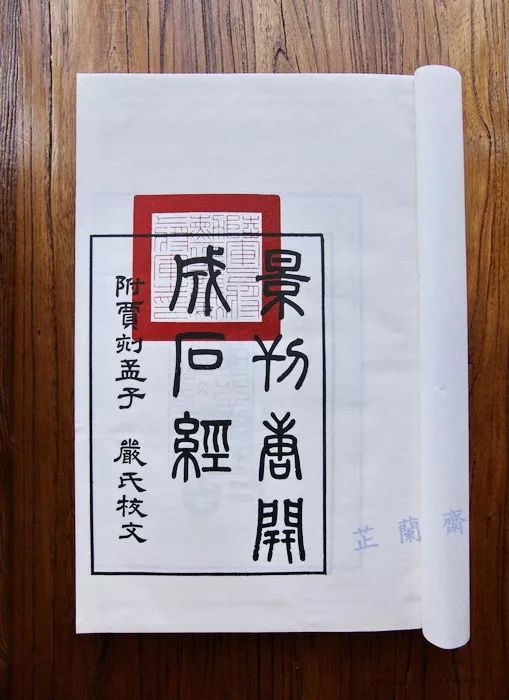 景刊唐開
成石經
附賈刻孟子 嚴氏校文
芷蘭齋